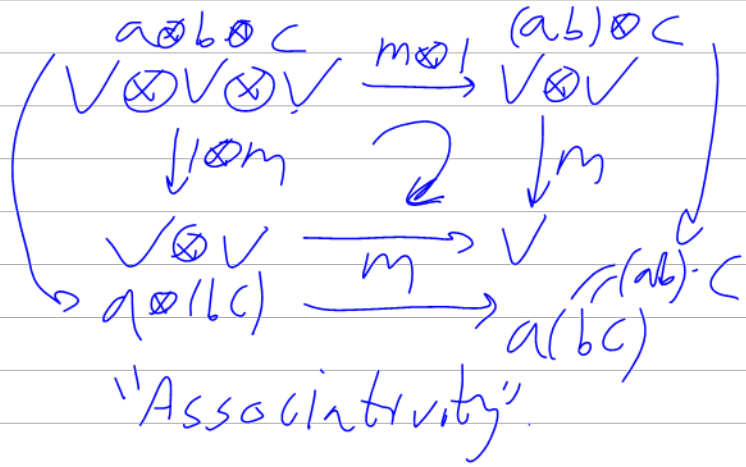 a⊗b⊗c (ab)⊗c
V⊗V⊗V m⊗1 V⊗V
1⊗m m
V⊗V V
m
a⊗(bc) (ab)·c
a(bc)
"Associativity"